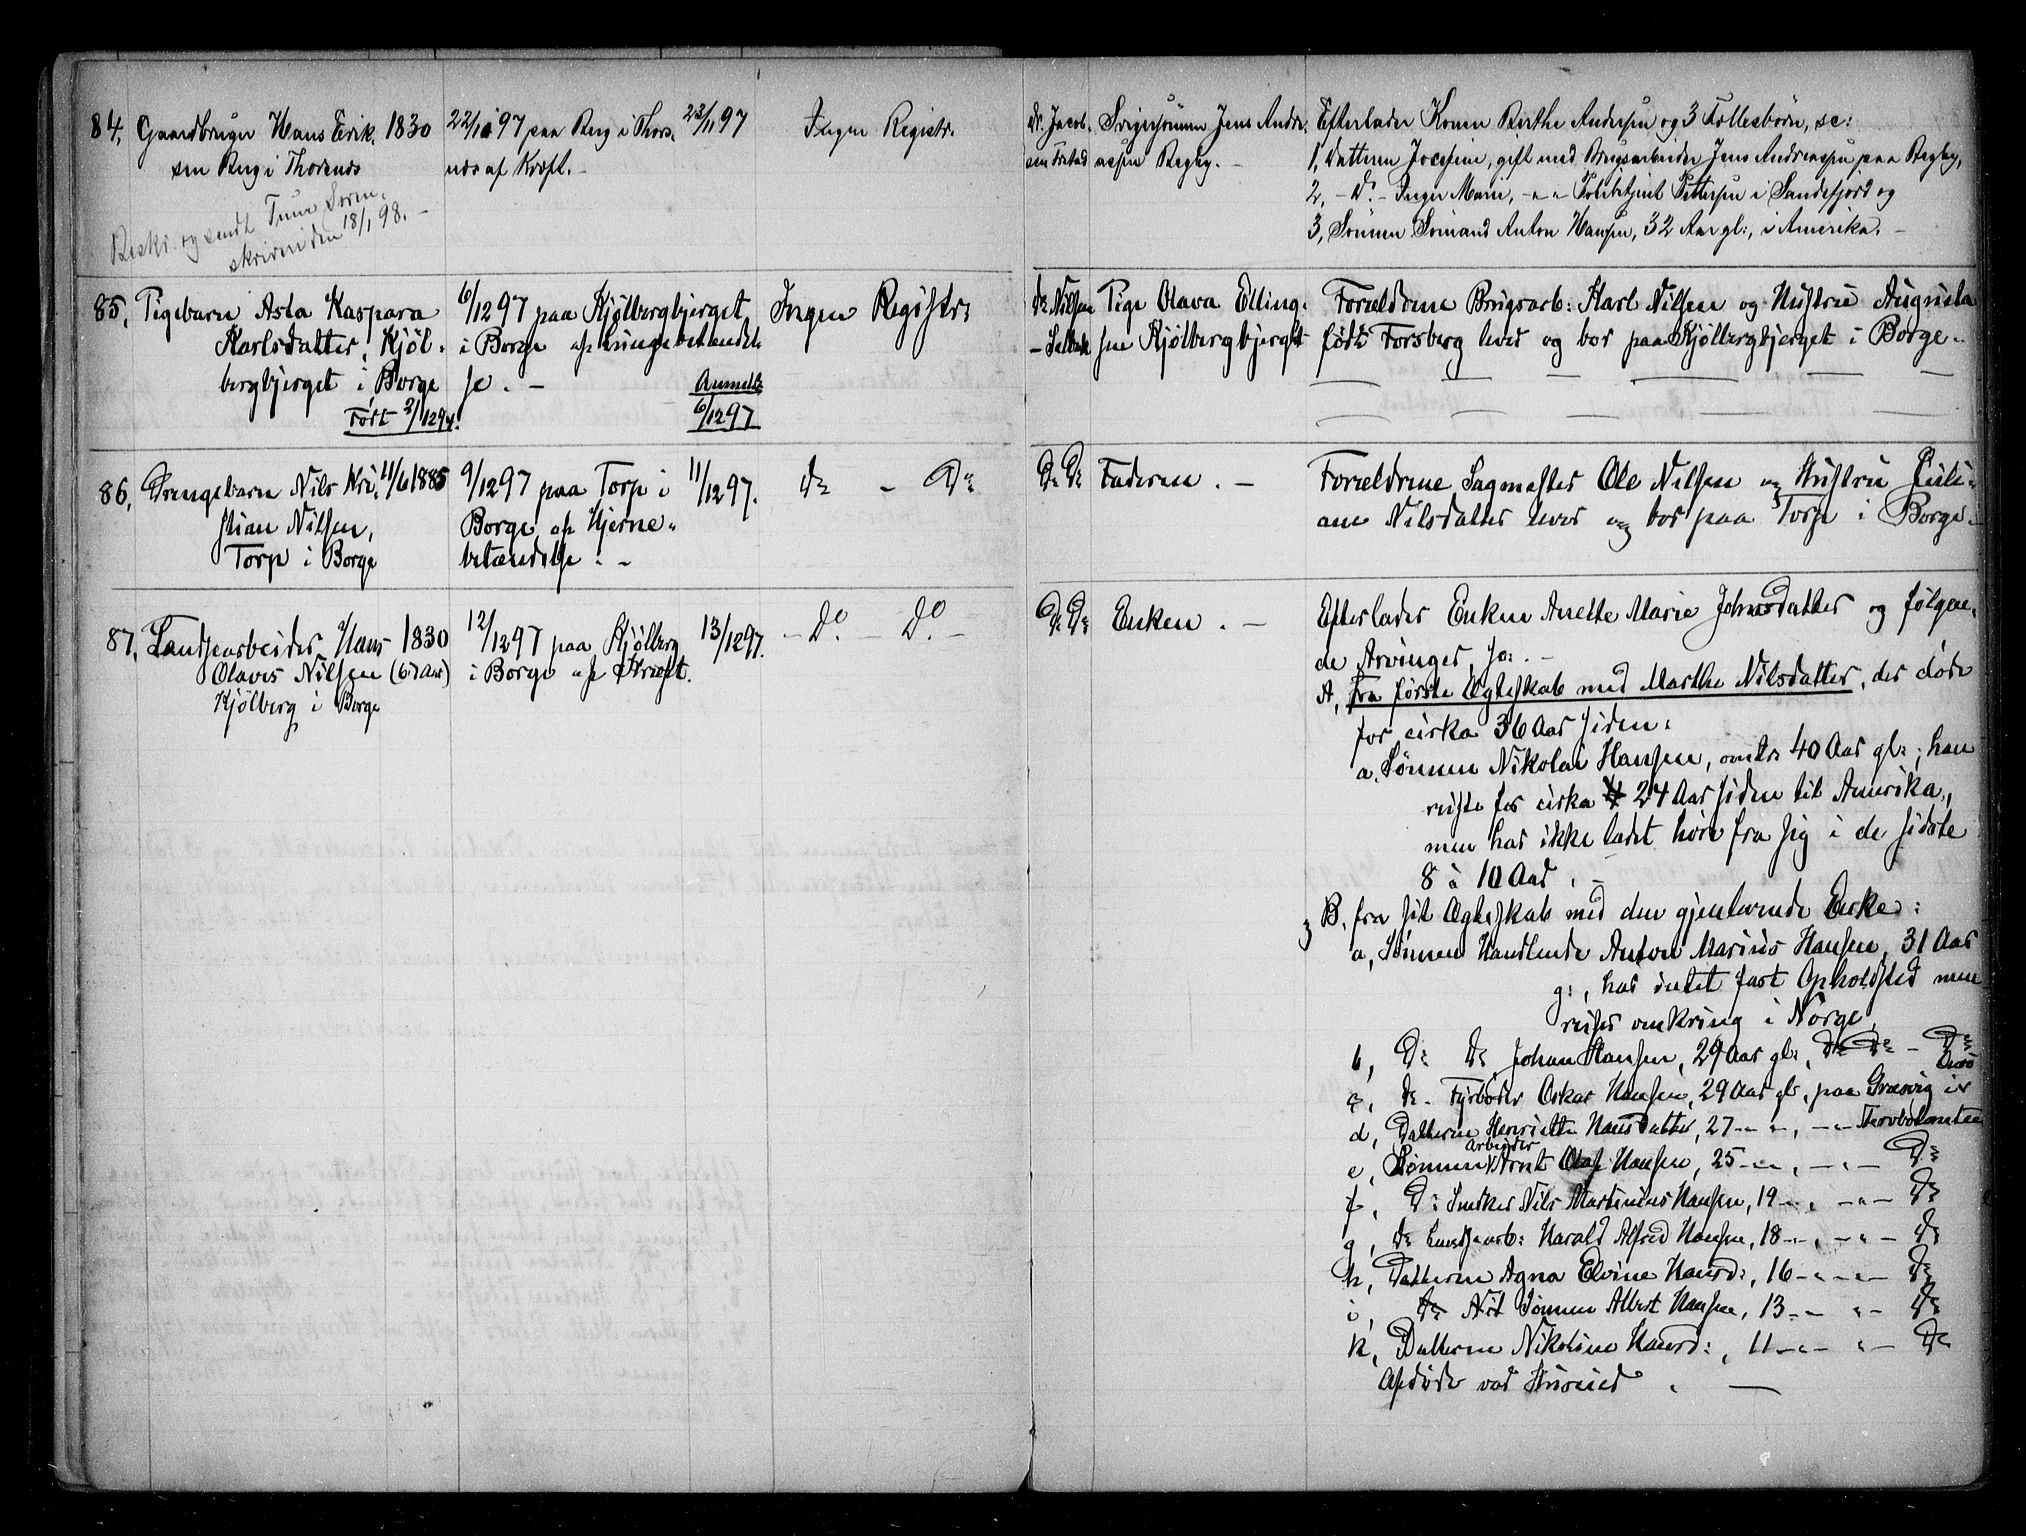 84. Gaardbruger Hans Erik- 1830 22/11 97 paa Berg i Thors- 23/11 97 Ingen Registr.
sen Berg i Thorsnes nes af Kræft. -
Beskr. og sendt Tune Soren-
skriveri den 18/1 98. -
Dr. Jacob- Svigersønnen Jens Andre-
sen Frstad assen Begby. -
Efterlader Konen Birthe Andersen og 3 Fællesbørn, sc:
1, Datteren Josefine, gift med Brugsarbeider Jens Andreassen paa Begby,
2, - Do - Inger Marie, - " - Politibetjent Pettersen i Sandefjord og
3, Sønnen Sømand Anton Hansen, 32 Aar gl:, i Amerika. -
85, Pigebarn Asta Kaspara 6/12 97 paa Kjølbergbjerget Ingen Registr:
Karlsdatter, Kjøl- i Borge af Lungebetændel-
bergbjerget i Borge se. - Anmeldt
Født 2/12 94. 6/12 97
Dr Nilsen Pige Olava Elling-
- Selbak sen Kjølbergbjerget
Forældrene Brugsarb: Karl Nilsen og Hustru Augusta
født Forsberg lever og bor paa Kjølbergbjerget i Borge.
86, Drengebarn Nils Kri- 11/6 1885 9/12 97 paa Torp i 11/12 97. do - Do
stian Nilsen, Borge af Hjerne-
Torp i Borge betændelse. -
Do Do Faderen. -
Forældrene Sagmester Ole Nilsen og Hustru Juli-
ane Nilsdatter lever og bor paa Torp i Borge.
87, Landsearbeider Hans 1830 12/12 97 paa Kjølberg 13/12 97. - Do. - Do. -
Olaves Nilsen (67 Aar) i Borge af Kræft.
Kjølberg i Borge
Do Do Enken. -
Efterlader Enken Anette Marie Johnsdatter og følgen-
de Arvinger, sc: -
A, Fra første Ægteskab med Marthe Nilsdatter, der døde
for cirka 36 Aar siden:
a, Sønnen Nikolai Hansen, omtr: 40 Aar gl:; han
reiste for cirka 24 Aar siden til Amerika,
men har ikke ladet høre fra sig i de sidste
8 à 10 Aar. -
B, fra sit Ægteskab med den gjenlevende Enke:
a, Sønnen Handlende Anton Marius Hansen, 31 Aar
g:, har intet fast Opholdsted men
reiser omkring i Norge,
b, Do Do Johan Hansen, 29 Aar gl:, Do Do - Do
c, do - Fyrbøder Oskar Hansen, 29 Aar gl, paa Græsvig i Onsø
d, Datteren Henriette Hansdatter, 27 - " -, - " -
e, Sønnen Arbeider Arnt Olaf Hansen, 25 - " -, - " - Do
f, Do Snedker Nils Martinius Hansen, 19 - " -, - " - Do
g, do Landsearb: Harald Alfred Hansen, 18 - " -, - " - Do
h, Datteren Agna Elvine Hansd:, 16 - " - " - Do
i, Sønnen Albert Hansen, 13 - " - " - Do
k, Datteren Nikoline Hansd:, 11 - " - " - Do
Afdøde var Husmand. -